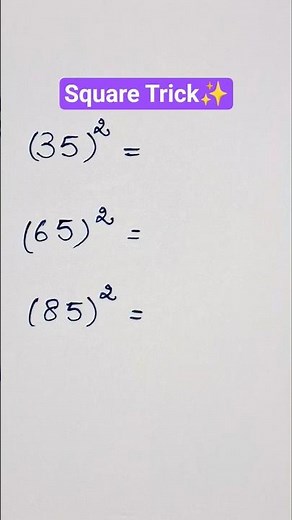 Square Trick✨
(35)² =
(65)² =
(85)² =